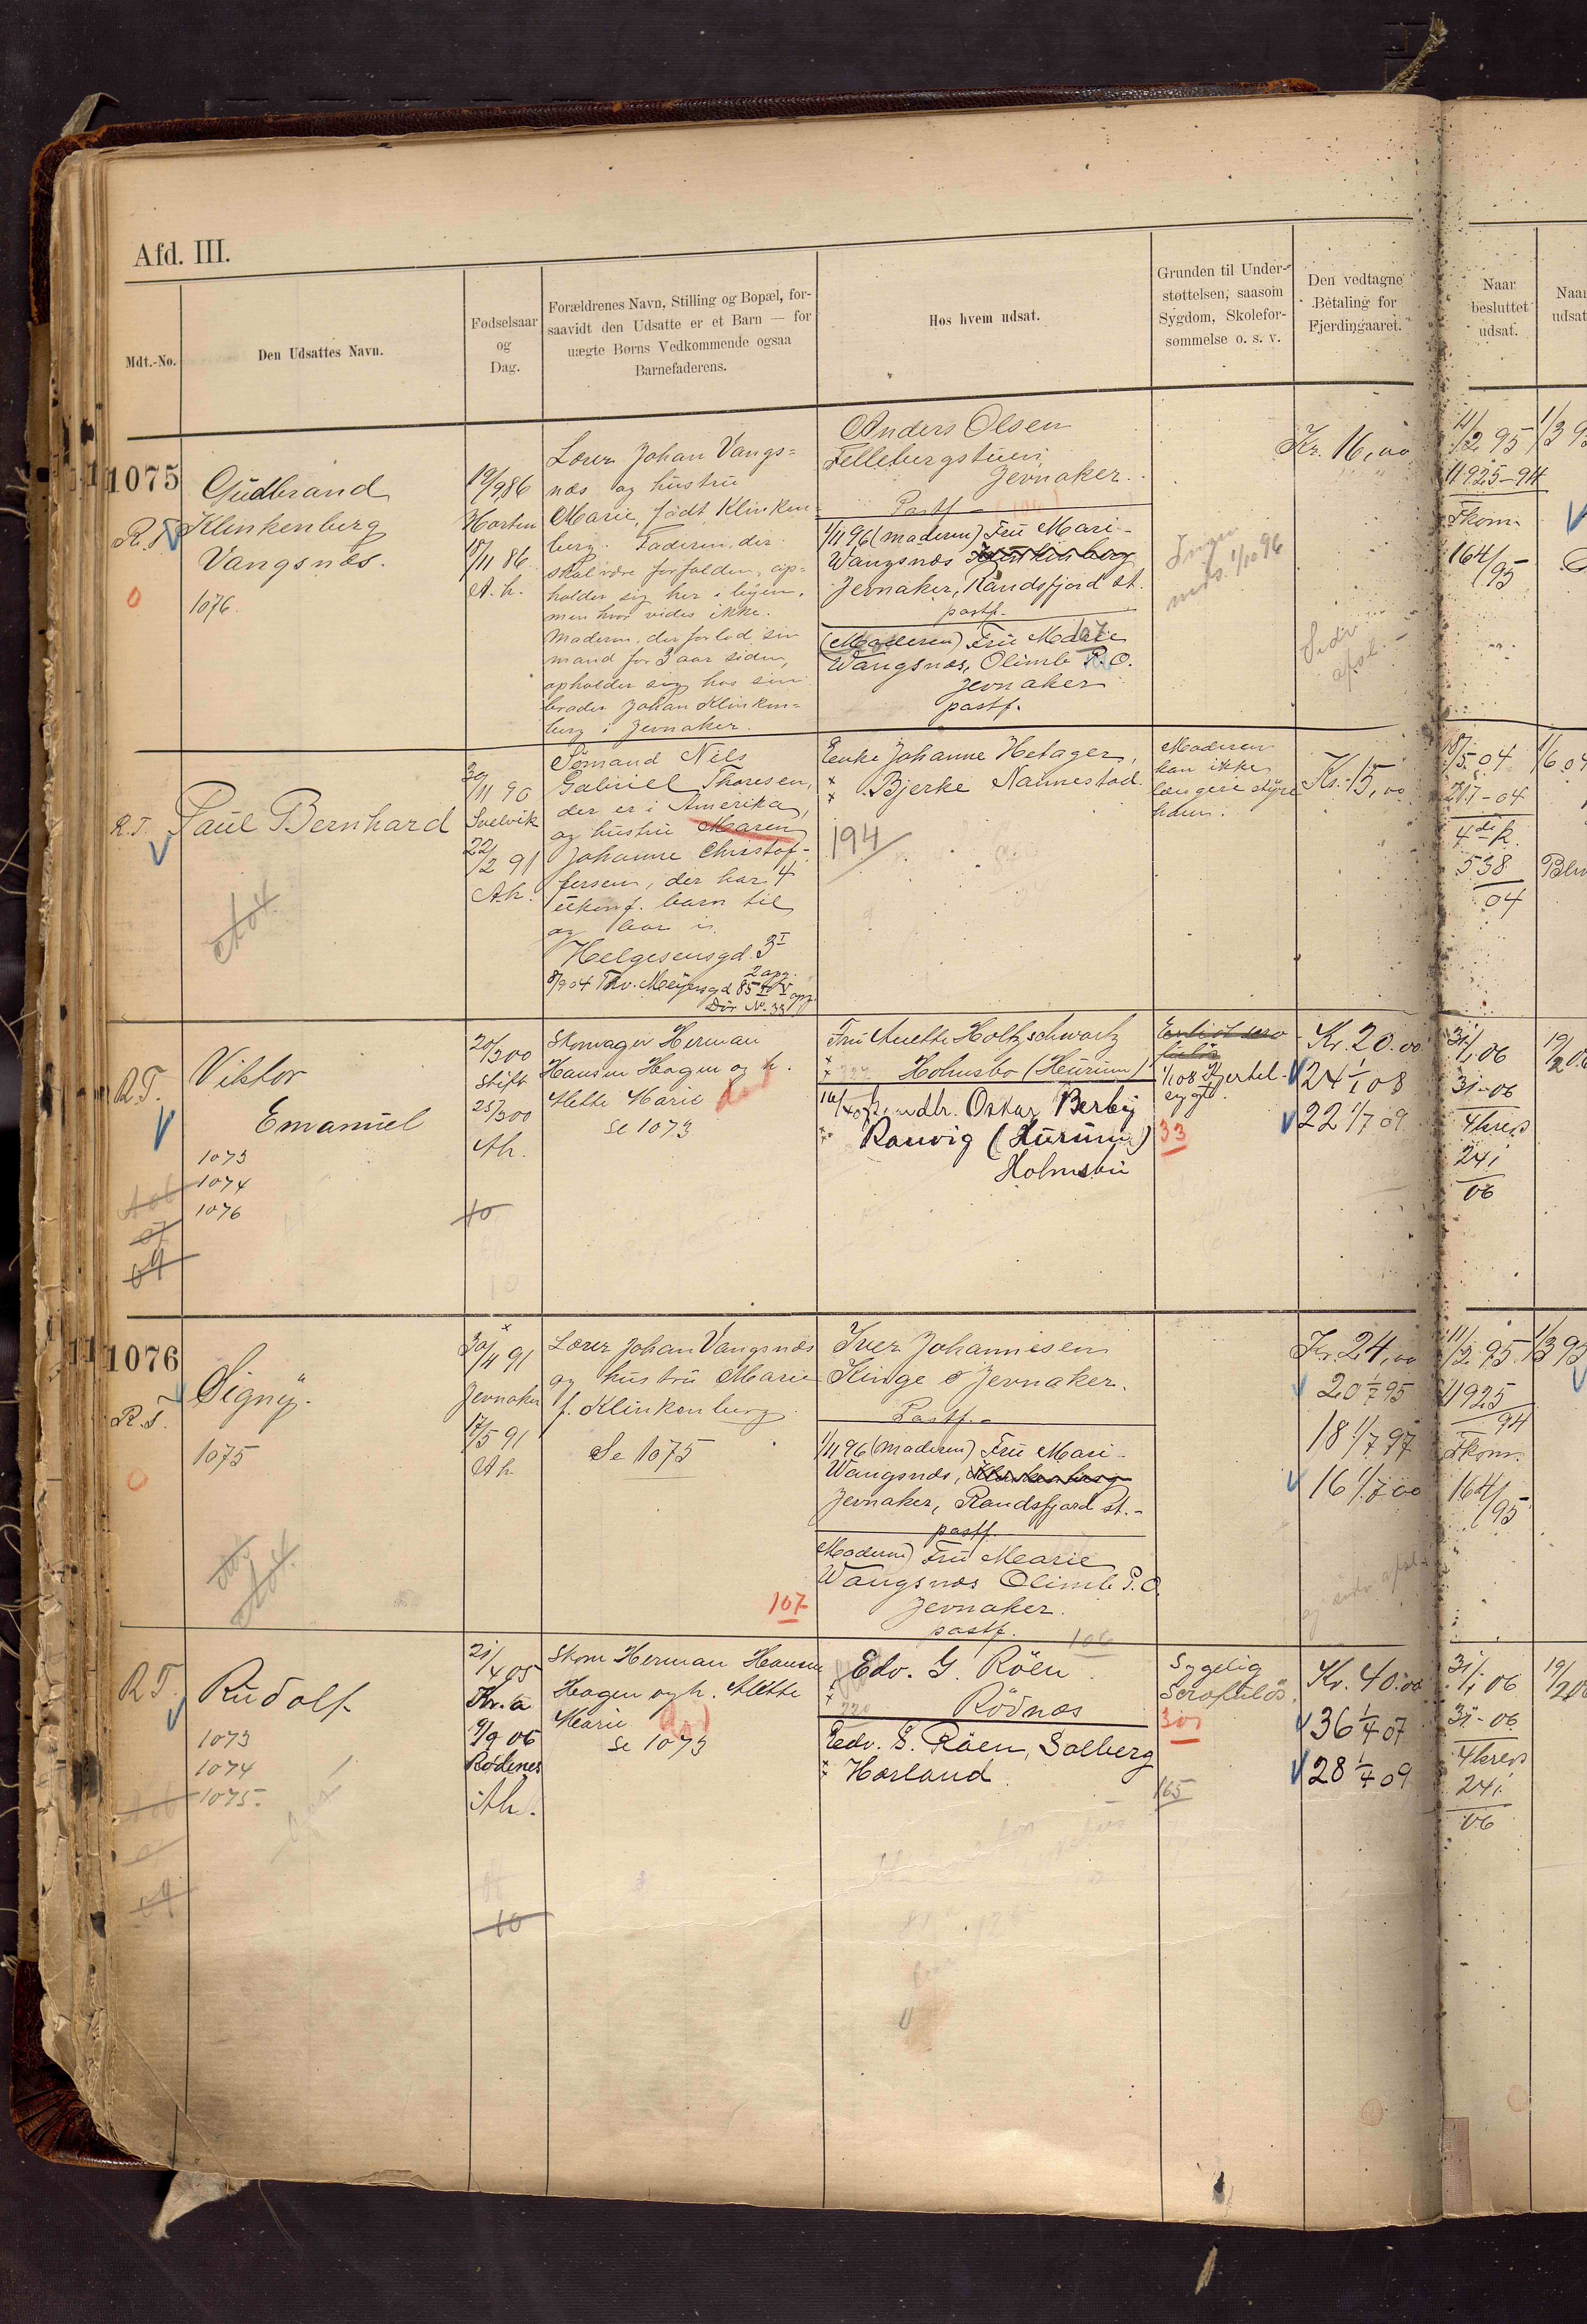 Afd. III.
Mdt.-No.
Den Udsattes Navn.
Fødselsaar
og
Dag.
Forældrenes Navn, Stilling og Bopæl, for-
saavidt den Udsatte er et Barn — for
uægte Børns Vedkommende ogsaa
Barnefaderens.
Hos hvem udsat.
Grunden til Under-
støttelsen, saasom
Sygdom, Skolefor-
sømmelse o. s. v.
Den vedtagne
Betaling for
Fjerdingaaret.
Naar
besluttet
udsat.
Naar
udsat
1075
R.T.
0
Gudbrand
Klinkenberg
Vangsnæs.
1076.
19/9 86
Horten
18/11 86
A. h.
Lærer Johan Vangs=
næs og hustru
Marie, født Klinken-
berg. Faderen, der
skal være forfalden, op-
holder sig her i byen,
men hvor vides ikke.
Moderen, der forlod sin
mand for 3 aar siden,
opholder sig hos sin
broder Johan Klinken=
berg i Jevnaker.
Anders Olsen
Fellebergstuen,
Jevnaker.
Postf.
1/11 96 (moderen) Fru Mari-
Wangsnæs Klinkenberg
Jevnaker, Randsfjord st.
postf.
107
(Moderen) Fru Marie
Wangsnæs, Olimb P.O.
Jevnaker
postf.
1/10 96
Kr. 16,00
11/2 95
11925-94
Fkom.
164/95
R.T.
Paul Bernhard
A 04
30/11 90
Svelvik
22/2 91
A.h.
Sømand Nils
Gabriel Thoresen,
der er i Amerika,
og hustru Maren
Johanne Christof-
fersen, der har 4
ukonf. børn til
og bor i
Helgesensgd. 3 I
2 opg.
8/9 04 Thv. Meyersgd 85 IV opg.
Dør No. 33
Enke Johanne Hetager,
Bjerke Nannestad.
194
Moderen
kan ikke
længere styre
ham.
Kr. 15,00
18/5 04
217-04
4de k.
538
04
1/6 04
R.T.
Viktor
Emanuel
1073
1074
1076
07
09
20/3 00
stift
25/3 00
Ah.
10
Skomager Herman
Hansen Hagen og h.
Alette Marie død
Se 1073
Fru Anette Holtzschwartz
Holmsbo (Hurum)
Oskar Berby
Ranvig (Hurum)
Holmsbu
1/1 08 Hjertel-
syge.
33
Kr. 20.00
24 1/1 08
22 1/7 09
31/1 06
31-06
4kreds
241
06
19/2 06
1076
R.T.
0
Signy.
1075
A 04.
30/4 91
Jevnaker
17/5 91
Ah
Lærer Johan Vangsnæs
og hustru Marie
f. Klinkenberg
Se 1075
107
Iver Johannesen
Kinge i Jevnaker.
Postf.
1/11 96 (moderen) Fru Mari-
Wangsnæs, Klinkenberg
Jevnaker, Randsfjord st.-
postf.
Moderen) Fru Marie
Wangsnæs Olimb P.O.
Jevnaker.
postf.
106
Kr. 24,00
20 1/7 95
18 1/7 97
16 1/7 00
11/2 95
11925
94
Fkom.
164/95
R.T.
Rudolf
1073
1074
1075.
09
21/4 05
Kr.a
9/9 06
Rødenes
Ah.
10
Skom Herman Hansen
Hagen og h. Alette
Marie død
Se 1073
Edv. G. Röen
Rödnæs
220
Edv. G. Röen, Solberg
Hærland
Sygelig
Scrofuløs.
301
165
Kr. 40.00
36 1/4 07
28 1/4 09
31/1 06
31-06
4kreds
241
06